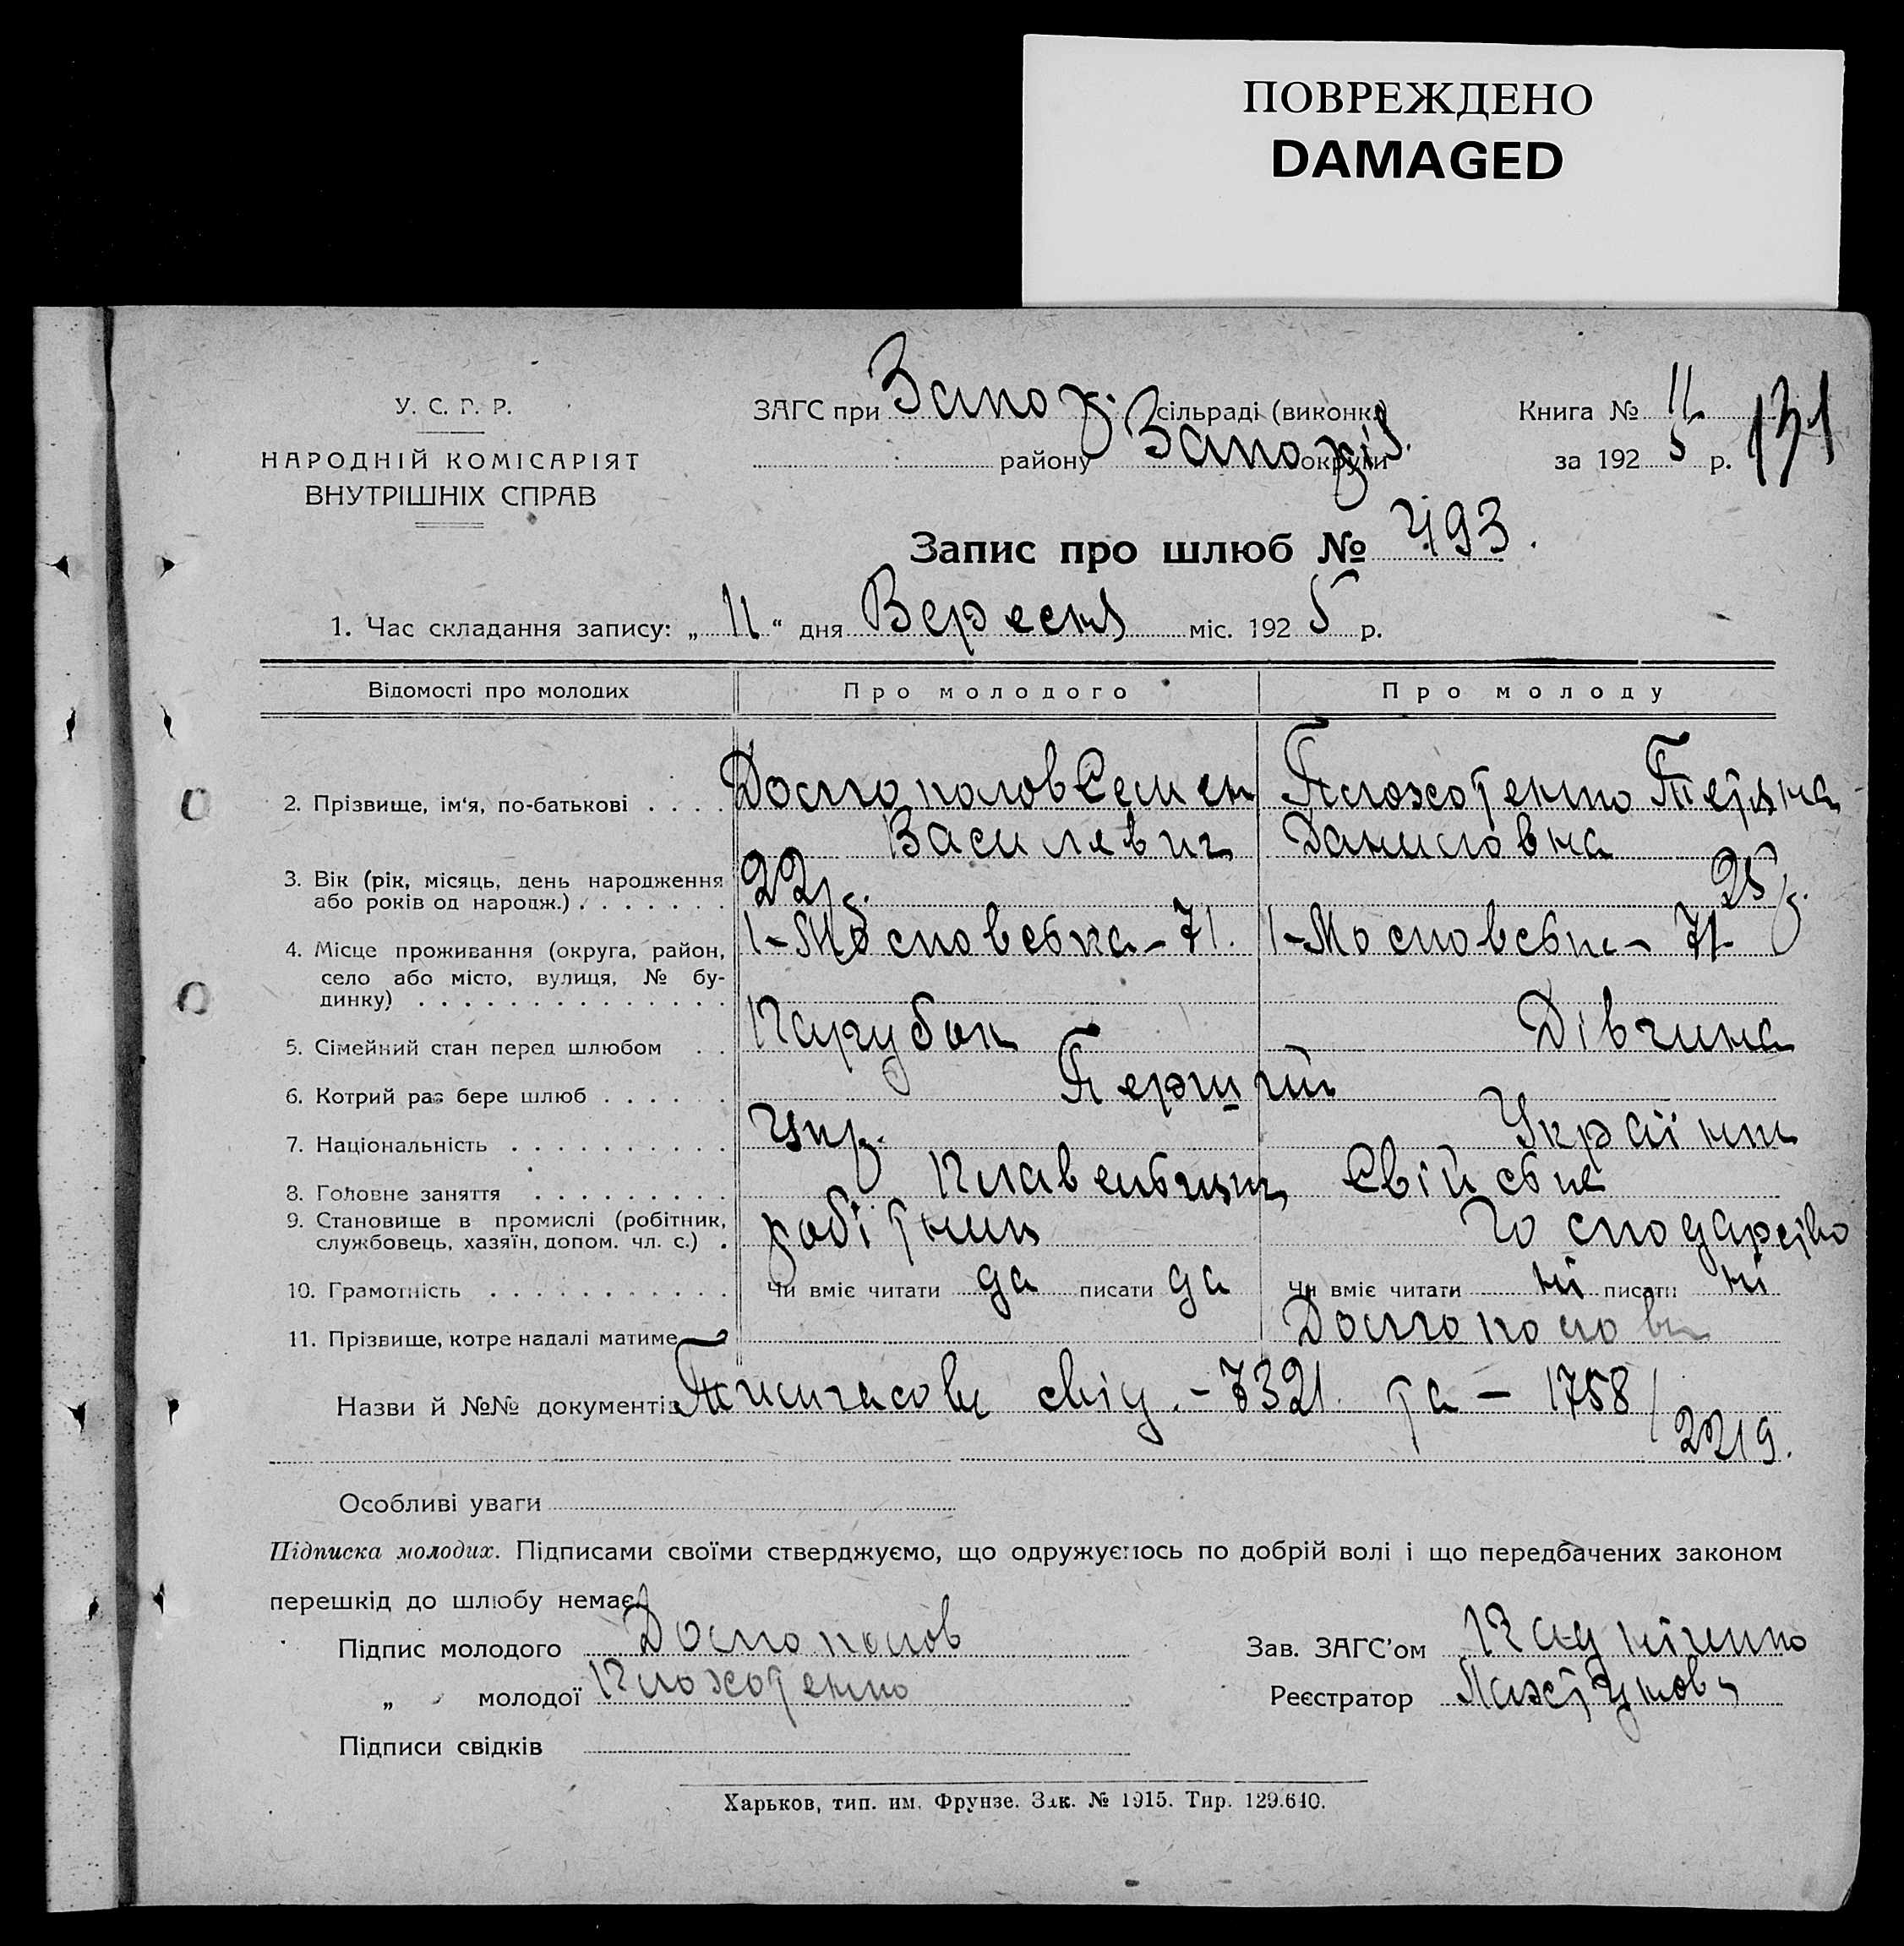 ПОВРЕЖДЕНО
DAMAGED
У. С. Р. Р.
НАРОДНІЙ КОМІСАРІЯТ
ВНУТРІШНІХ СПРАВ
ЗАГС при Запоз. сільраді (виконк.)
району Запоріз. округи
Книга № 11
за 192 5 р.
131
Запис про шлюб № 493.
1. Час складання запису: „ 11 “ дня Вересня міс. 192 5 р.
Відомості про молодих Про молодого Про молоду
2. Прізвище, ім‘я, по-батькові . . . . Долгополов Семен Плохотенко Тетяна
Василявич Даниловна
3. Вік (рік, місяць, день народження
або років од народж.) . . . . . . . 22 р. 25 р.
4. Місце проживання (округа, район, 1-Московська-71. 1-Московська-71
село або місто, вулиця, № бу-
динку) . . . . . . . . . . . . . .
5. Сімейний стан перед шлюбом . . Парубок Дівчина
6. Котрий раз бере шлюб . . . . . . Перший
7. Національність . . . . . . . . . . Укр. Українк
8. Головне заняття . . . . . . . . .
9. Становище в промислі (робітник,
службовець, хазяїн, допом. чл. с.) . робітник господарство
10. Грамотність . . . . . . . . . . . Чи вміє читати да писати да Чи вміє читати ні писати ні
11. Прізвище, котре надалі матиме Долгополов
Назви й №№ документів Тимчасове свід. - 7321. та - 1758/
2219.
Особливі уваги
Підписка молодих. Підписами своїми стверджуємо, що одружуємось по добрій волі і що передбачених законом
перешкід до шлюбу немає.
Підпис молодого Долгополов Зав. ЗАГС’ом
„ молодої Плохотенко Реєстратор
Підписи свідків
Харьков, тип. им. Фрунзе. Зак. № 1915. Тир. 129.640.